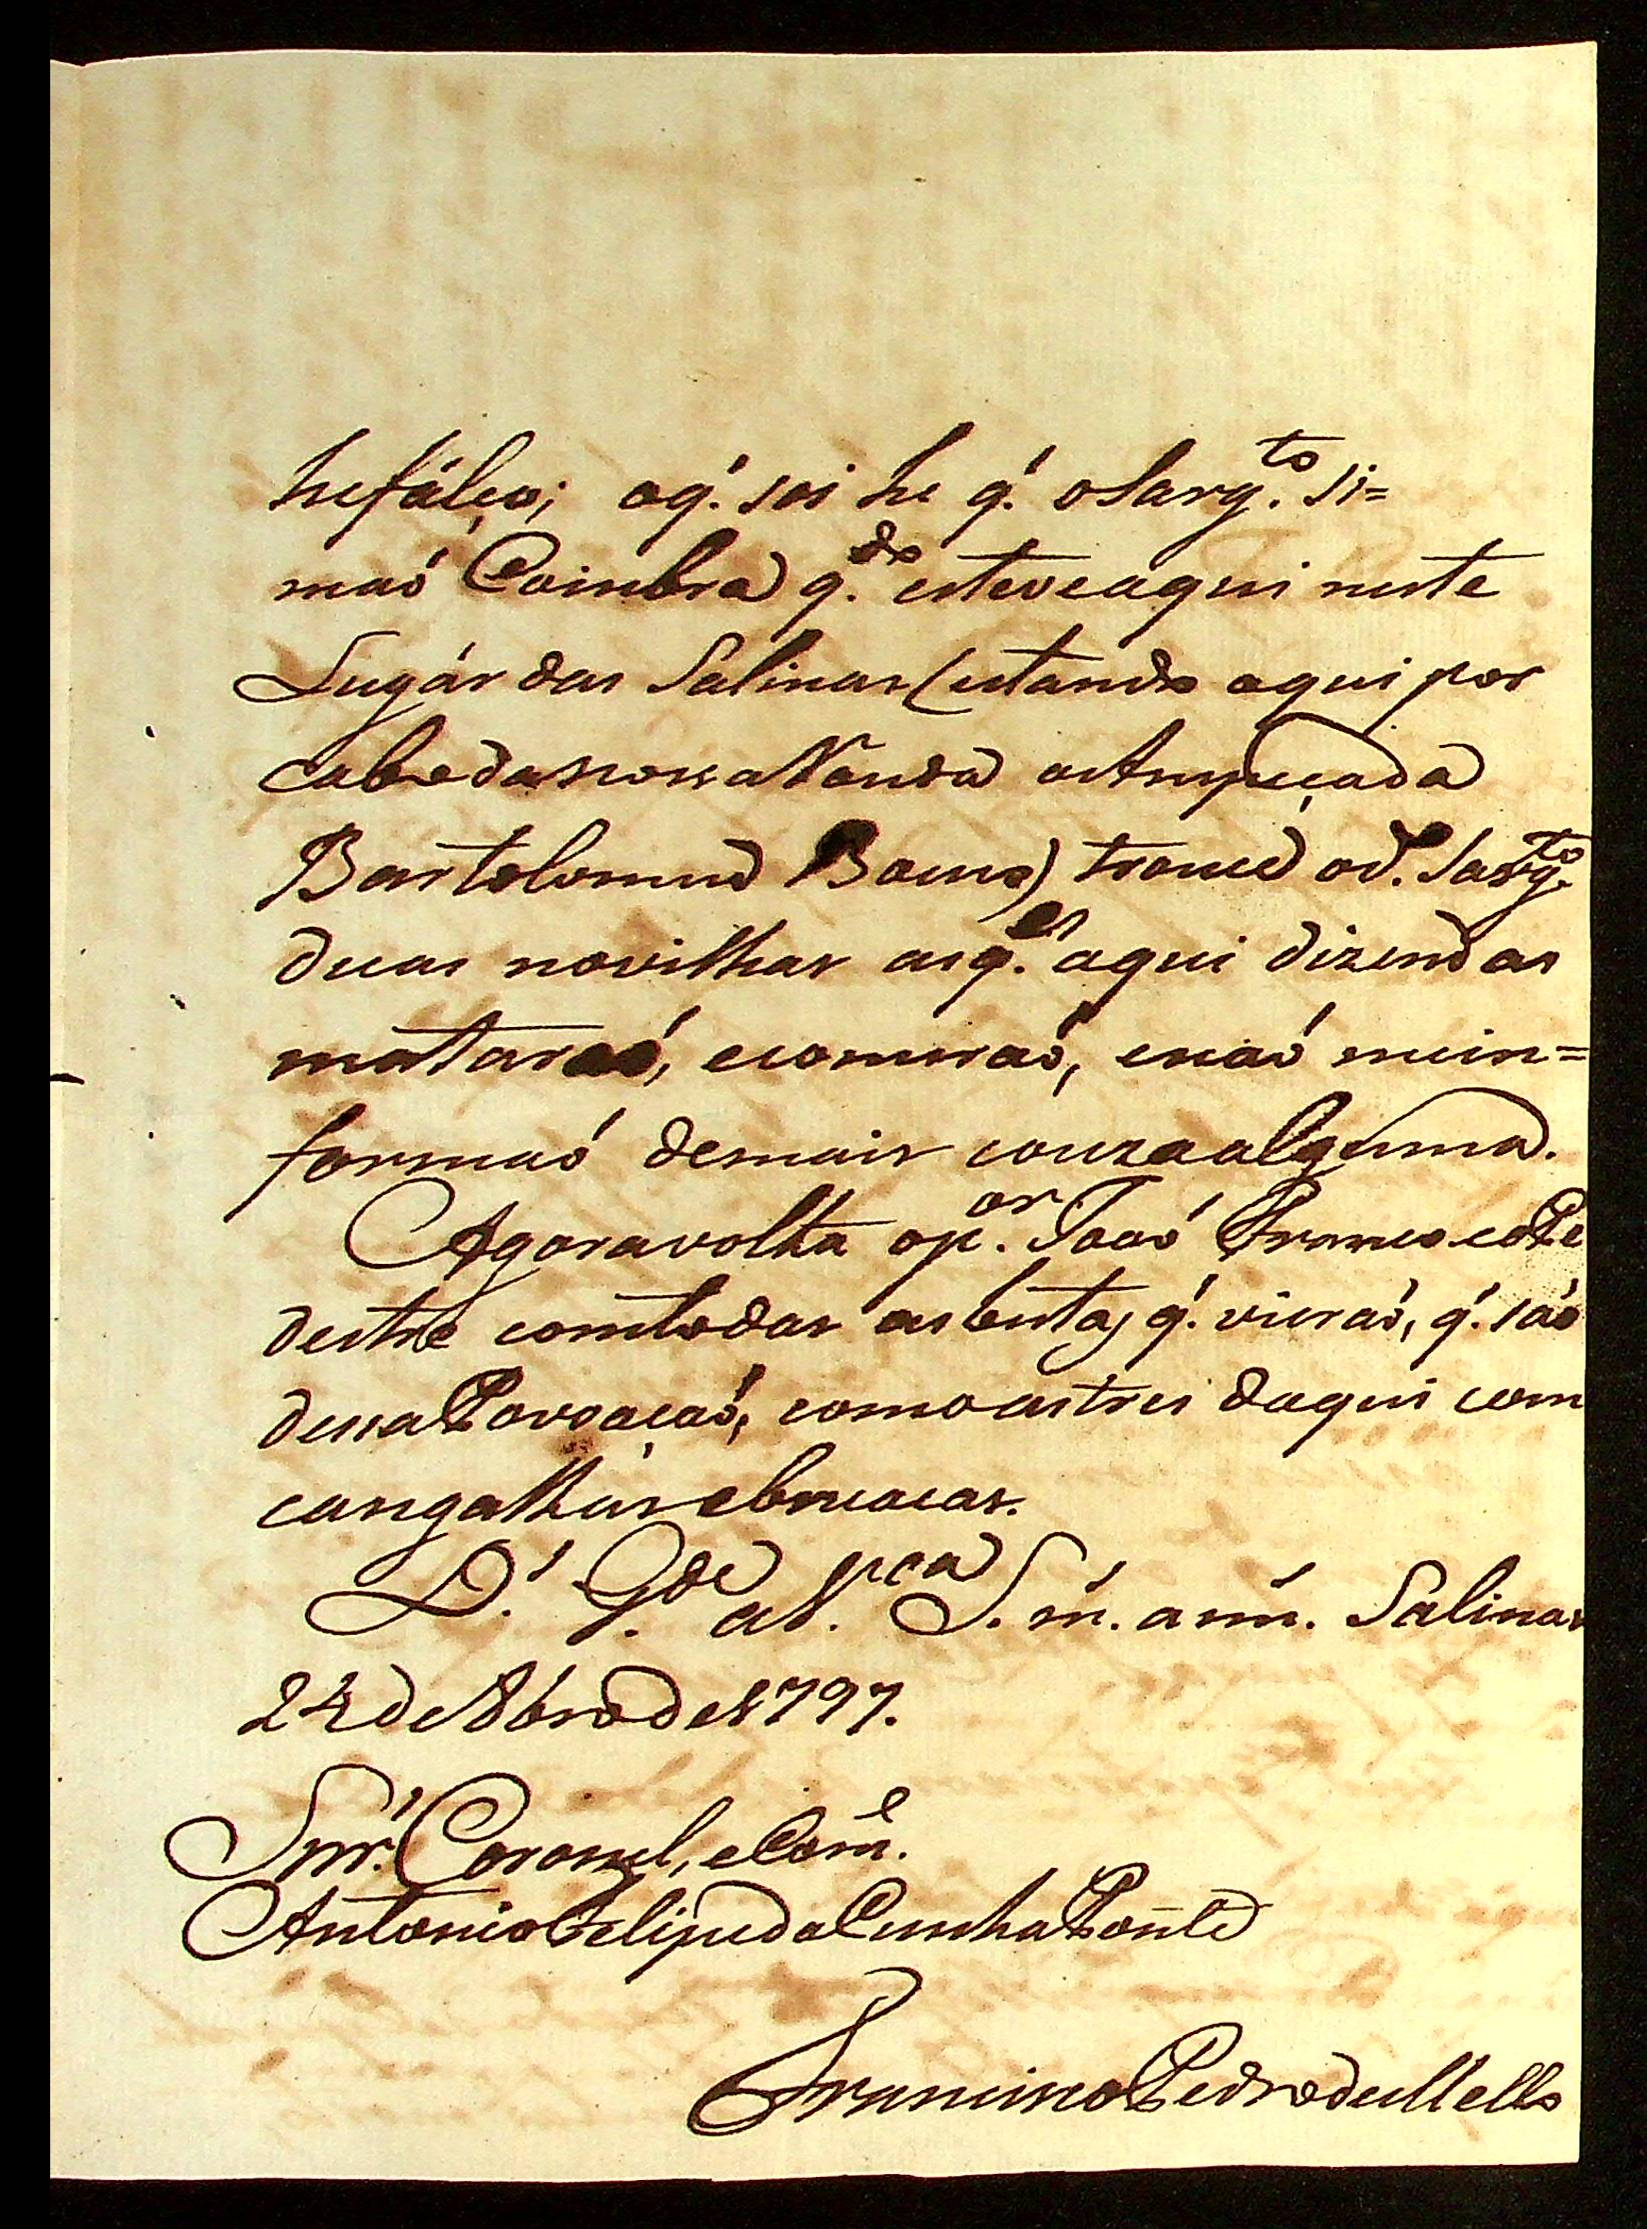 he fálço; oq.' sei he q.' o Sarg.to Si=
maó Coimbra q.do esteve aqui neste
Lugár das Salinas (estando aqui por
cabo da nossa Ronda o Anspeçada
Bartolomeu Bueno) trouce o d.o Sarg.to
duas novilhas as q.es aqui dizem as
mataraó, ecomeraó, enaó mein=
formaó demais couza alguma.
Agora volta o p.or Joaó Franco e o Pe
destre com todas as bestas q.' vieraó, q.' saó
dessa Povoaçaó, como as tres daqui com
cangalhas ebruacas.
D.' G.de a V.ca S. m. a m. Salinas
24 de 8br.o de 1797.
Snr.' Coronel, e Com.e
Antonio Felipe da Cunha Ponte
Francisco Pedro de Mello